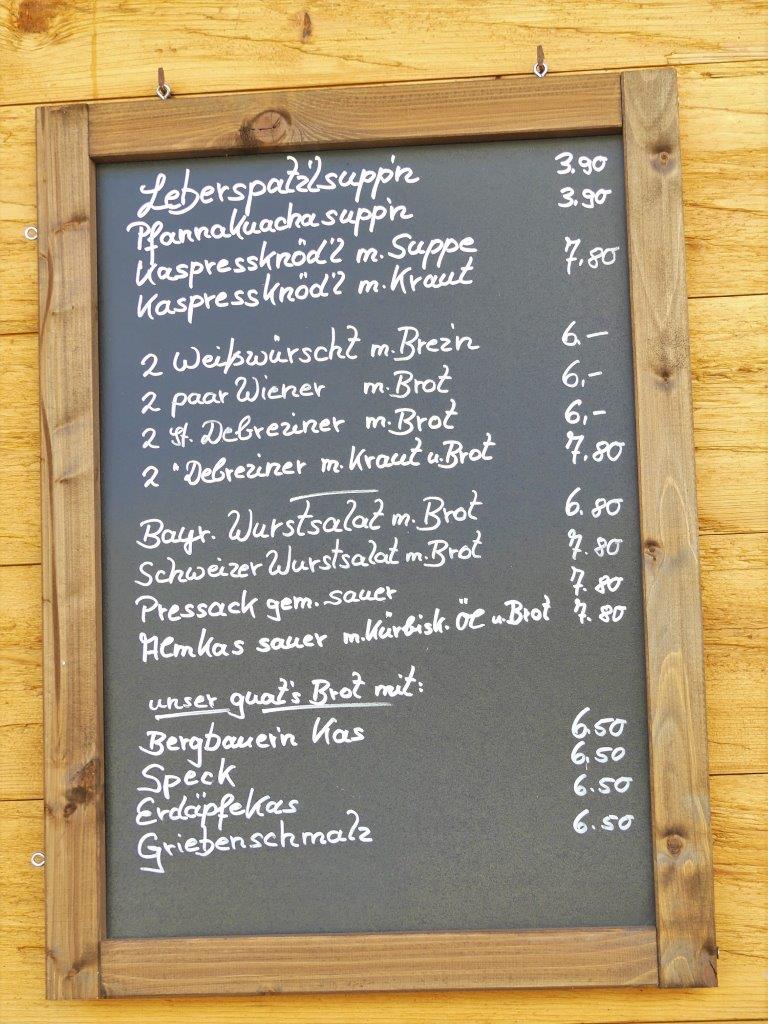 Leberspatz'lsupp'n 3.90
Pfannakuachasupp'n 3.90
Kaspressknöd'l m. Suppe 7.80
Kaspressknöd'l m. Kraut
2 Weißwürscht m. Brez'n 6.—
2 paar Wiener m. Brot 6.-
2 St. Debreziner m. Brot 6.-
2 " Debreziner m. Kraut u. Brot 7.80
Bayr. Wurstsalat m. Brot 6.80
Schweizer Wurstsalat m. Brot 7.80
Pressack gem. sauer 7.80
Almkas sauer m. Kürbisk. Öl u. Brot 7.80
unser guat's Brot mit:
Bergbauern Kas 6.50
Speck 6.50
Erdäpfekas 6.50
Griebenschmalz 6.50